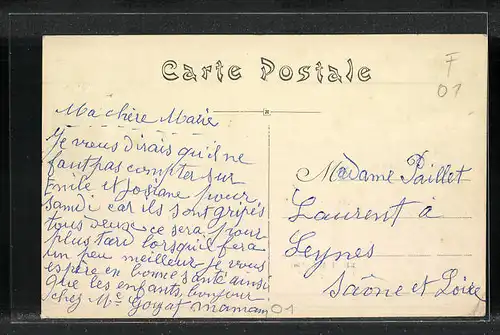 Carte Postale
F
01
Ma chère Marie
Je vreus dirais qu'il ne
faut pas compter sur
Emile et Josiane pour
samdi car ils sont gripés
tous deux ce sera pour
plus tard lorsqu'il fera
un peu meilleur je vous
espère en bonne santé ainsi
que les enfants, bonjour
chez Me Goyat maman
01
Madame Paillet
Laurent à
Leynes
Saône et Loire